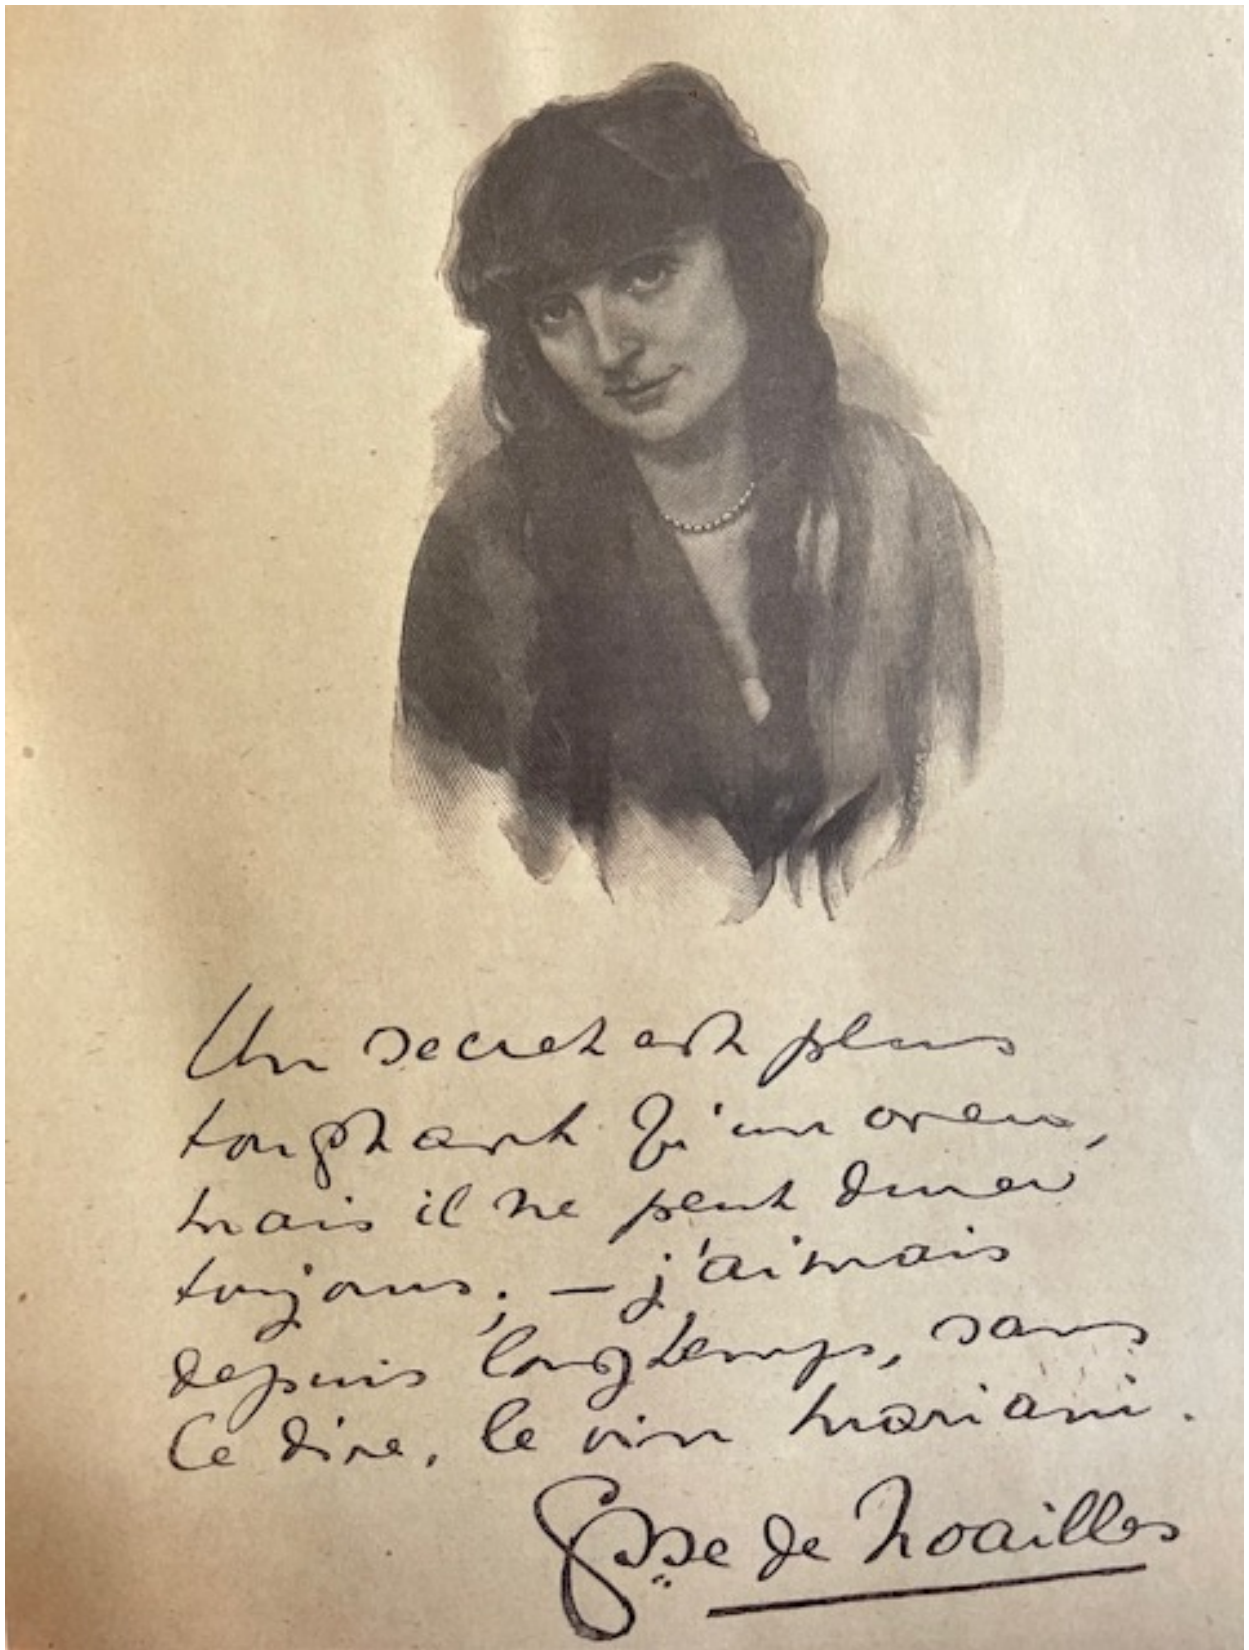 Un secret est plus
touchant qu'un aveu,
mais il ne peut durer
toujours; – j'aimais
depuis longtemps, sans
le dire, le vin mariani.
Ctesse de Noailles